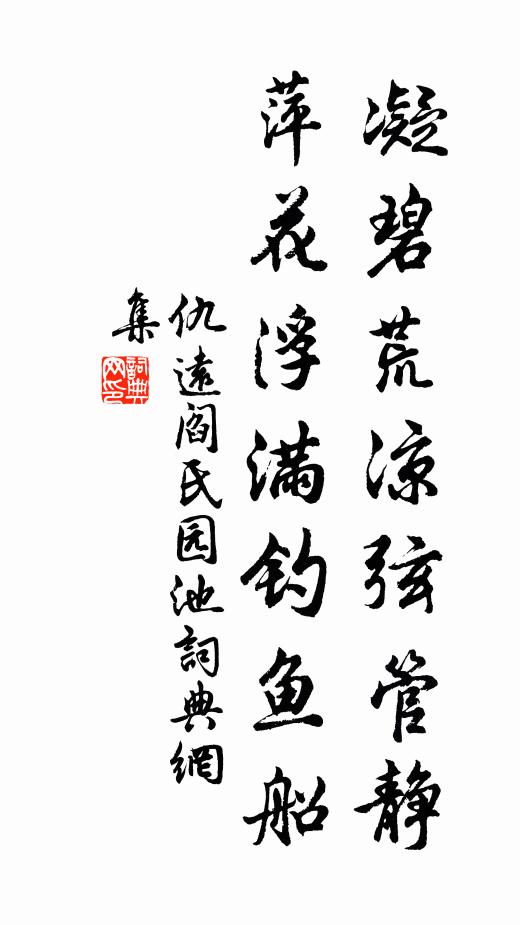 凝碧荒凉弦管静
萍花浮满钓鱼船
仇遠阎民园池詞典網
集
詞典网印